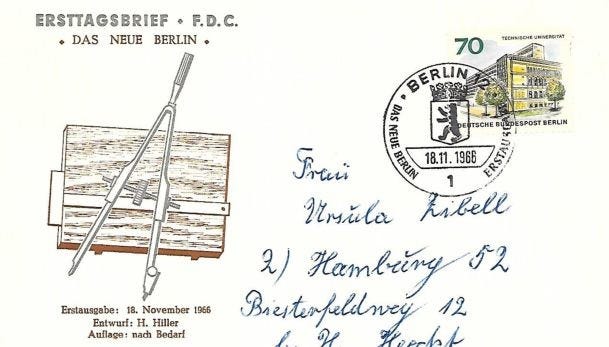 ERSTTAGSBRIEF • F.D.C.
• DAS NEUE BERLIN •
70
TECHNISCHE UNIVERSITÄT
DEUTSCHE BUNDESPOST BERLIN
BERLIN 12
DAS NEUE BERLIN
ERSTAUSGABE
18.11.1966
1
Frau
Ursula Zibell
2) Hamburg 52
Biesterfeldweg 12
b. H.
Erstausgabe: 18. November 1966
Entwurf: H. Hiller
Auflage: nach Bedarf